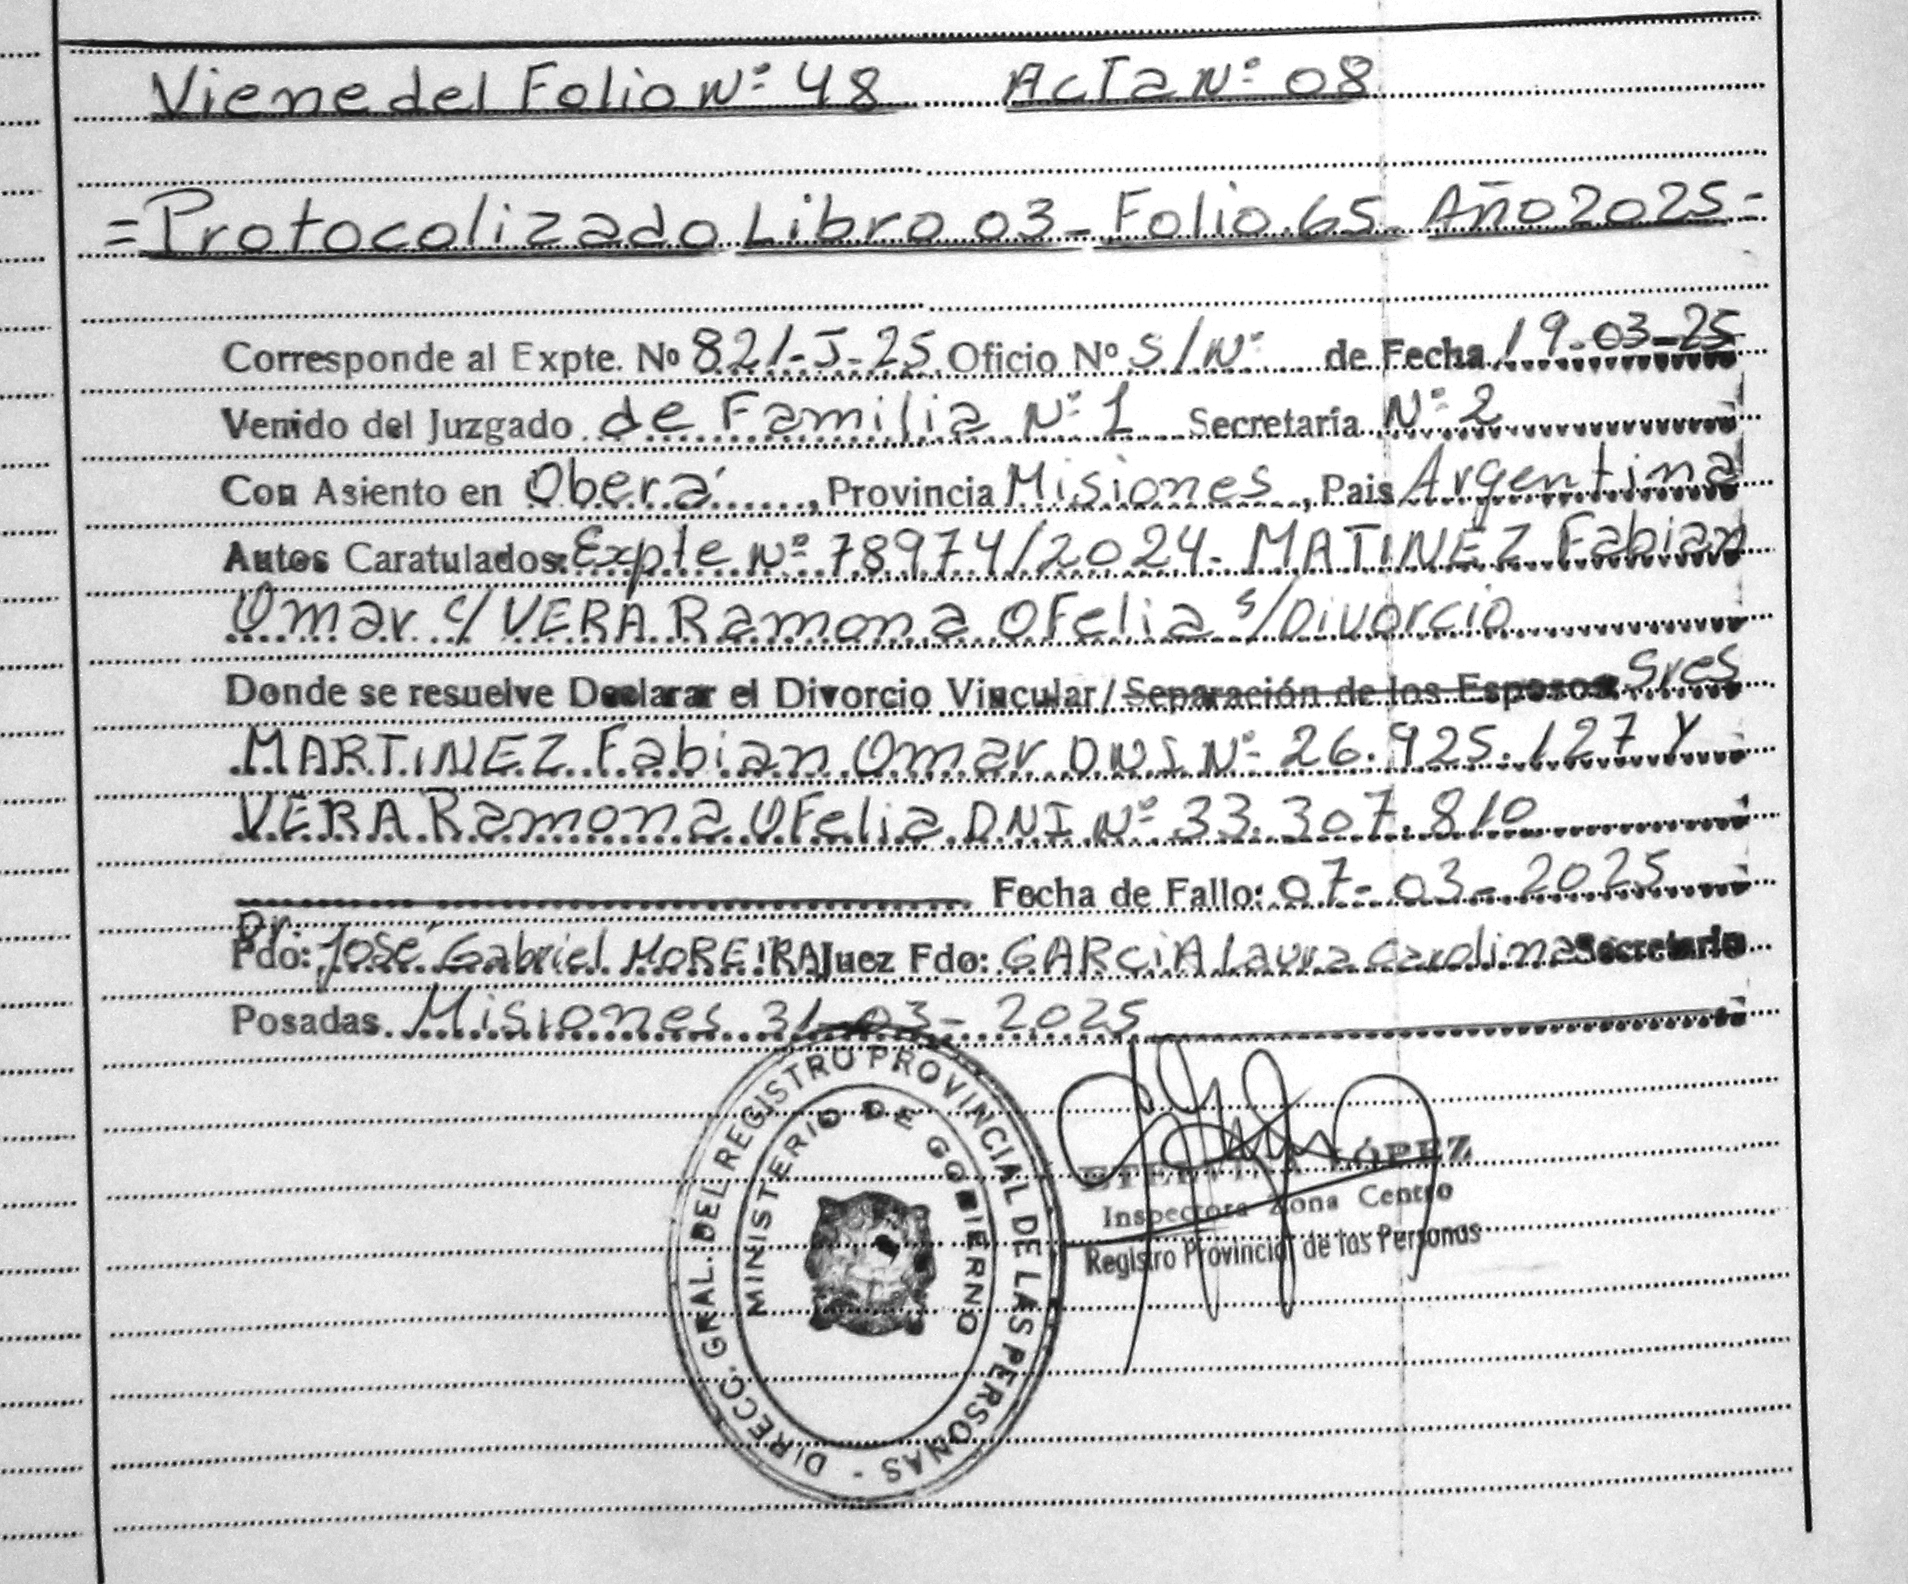 Viene del Folio Nº 48 Acta Nº 08
=Protocolizado Libro 03-Folio 65-Año 2025=
Corresponde al Expte. Nº 821-J-25 Oficio Nº S/Nº de Fecha 19-03-25
Venido del Juzgado de Familia Nº 1 Secretaría Nº 2
Con Asiento en Oberá, Provincia Misiones, Pais Argentina
Autos Caratulados: Expte Nº 78974/2024- MATINEZ Fabian
Omar c/ VERA Ramona OFelia s/Divorcio
Donde se resuelve Declarar el Divorcio Vincular/Separación de los Esposos Sres
MARTINEZ Fabian Omar DNI Nº 26.925.127 Y
VERA Ramona OFelia DNI Nº 33.307.810
Fecha de Fallo: 07-03-2025
Dr.
Fdo: José Gabriel MOREIRA Juez Fdo: GARCIA Laura Carolina Secretario
Posadas Misiones 31-03-2025
DIRECC. GRAL. DEL REGISTRO PROVINCIAL DE LAS PERSONAS -
MINISTERIO DE GOBIERNO
LÓPEZ
Inspectora Zona Centro
Registro Provincial de las Personas